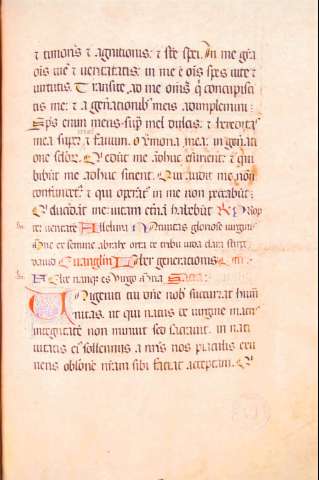 ⁊ timoris ⁊ agnitionis: ⁊ sc̄e spei. In me gr̄a
oīs vie ⁊ veritatis: in me ē oīs spes vite ⁊
virtutis. Transite ad me om̄s q̄ concupisci
tis me: ⁊ a gen̄ationib᷒ meis adimplemini:
Sp̄s enim meus sup̄ mel dulcis: ⁊ hereditas
mea super mel ⁊ favum. Memoria mea in gen̄ati
one sclor̄. Qui edūt me adhuc esurient: ⁊ qui
bibūt me adhuc sitient. Qui audit me non
confundet̄: ⁊ qui operāt̄ in me non peccabūt:
Qui elucidāt me: vitam etn̄ā habebūt R̄ Prop
ter veritatē Alleluia Nativitas gloriose virginis
ex semine abrahe orta de tribu iuda clara stirpe
david Evangeliū Liber generationis
Felix namq̄ es virgo Secreta
Unigeniti tui dn̄e nob̄ succurrat hum̄
nitas. ut qui natus de virgine matris
integritatē non minuit sed sacravit. in nati
vitatis ei᷒ sollemniis a nr̄is nos piaculis exu
ens oblonē nr̄am sibi faciat acceptam. Qi